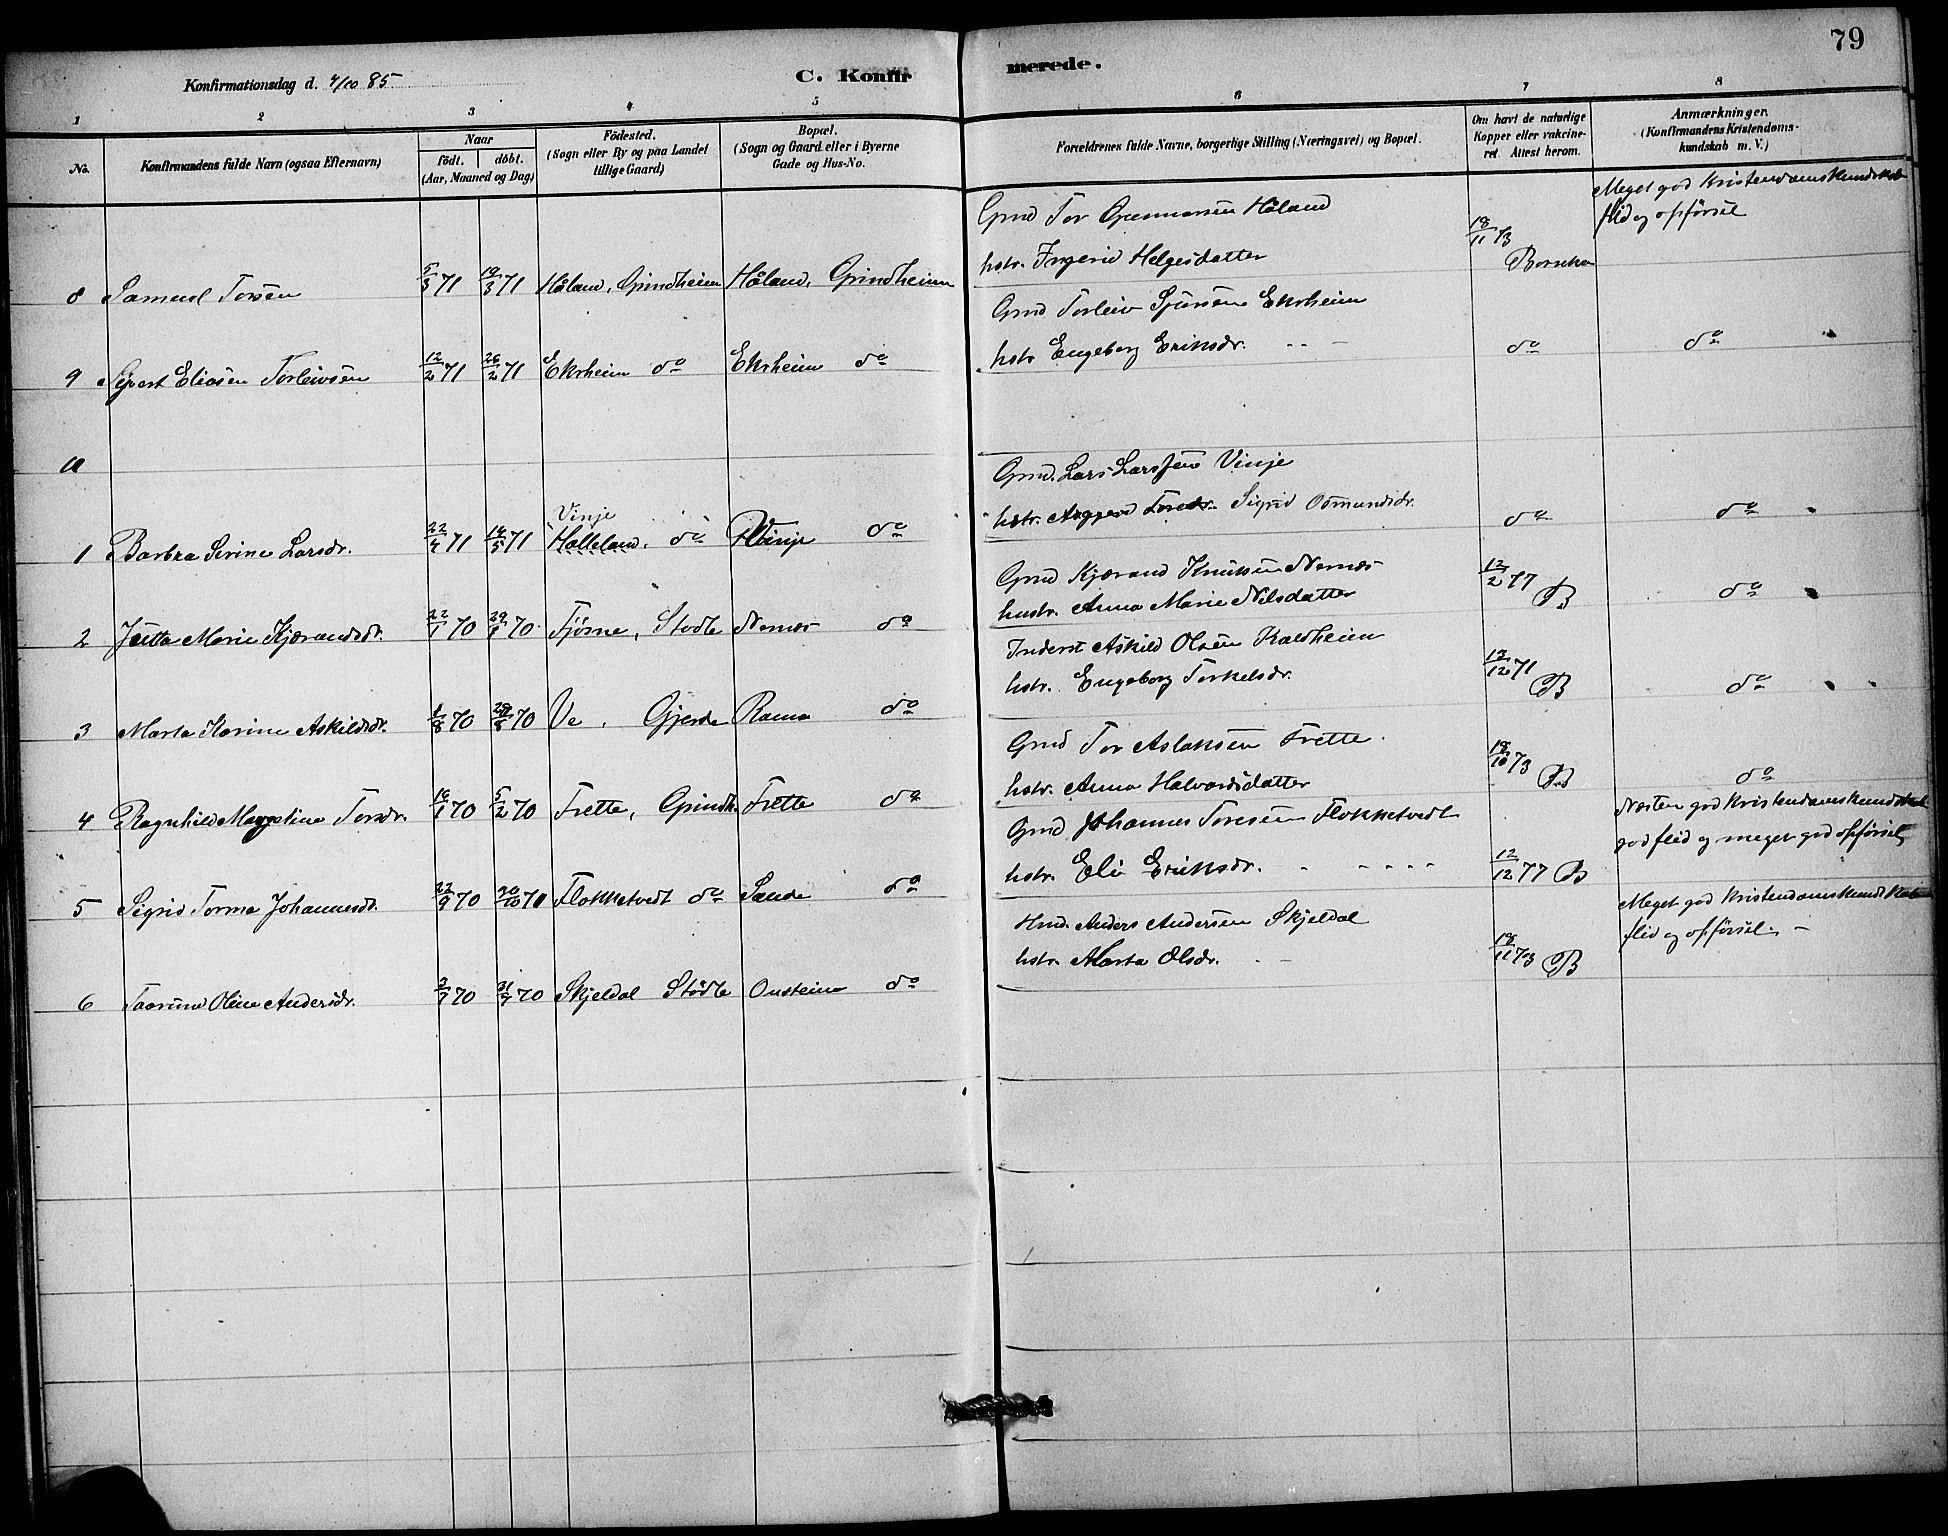 79
Konfirmationsdag d. 4/10 85
C. Konfir merede.
1 2 3 4 5 6 7 8
No.
Konfirmandens fulde Navn (ogsaa Efternavn)
Naar
födt. döbt.
(Aar, Maaned og Dag)
Födested.
(Sogn eller By og paa Landet
tillige Gaard)
Bopæl.
(Sogn og Gaard eller i Byerne
Gade og Hus-No.
Forældrenes fulde Navne, borgerlige Stilling (Næringsvei) og Bopæl.
Om havt de naturlige
Kopper eller vakcine-
ret. Attest herom.
Anmærkninger.
(Konfirmandens Kristendoms-
kundskab m. V.)
Gmd Tor Gunnarsen Håland
Meget god Kristendomskundskab
flid og opförsel
hstr. Ingerid Helgesdatter
18/11 73
8 Samuel Torsen 5/3 71 19/3 71 Håland, Grindheim Håland, Grindheim
Gmd Torleiv Sjursen Ekrheim
hstr Engeborg Eriksdr. do do
9 Sjvert Eliasen Torleivsen 12/2 71 26/2 71 Ekrheim do Ekrheim do
10
Gmd. Lars Larssen Vinje
hstr. Sigrid Osmundsdr. do do
Vinje
1 Barbra Serine Larsdr. 22/4 71 71 Halleland, do Vinje do
Gmd Kjærand Knutsen Nernæs
hustr. Anna Marie Nilsdatter 12/2 77 B do
2 Jætta Marie Kjærandsdr. 22/1 70 70 Tjörne, Stodle Nernæs do
Inderst Askild Olsen Kaldheim
hstr. Engeborg Torkelsdr. 13/12 71 B do
3 Marta Karine Askildsdr. 1/8 70 70 Ve, Gjerde Rama do
Gmd Tor Aslaksen Frette.
hstr. Anna Halvordsdatter 18/10 73 B do
4 Ragnhild Torsdr. 16/1 70 5/2 70 Frette, Grindh. Frette do
Gmd Johannes Toresen Flokketvedt
Næsten god Kristendomskundskab
god flid og meget god opförsel
hstr. Eli Eriksdr. 12/12 77 B
5 Sigrid Torma Johannesdr. 22/9 70 30/10 70 Flokketvedt do Sande do
Hmd. Anders Andersen Skjeldal
Meget god Kristendomskundskab
flid og opförsel. -
hstr. Marta Olsdr. 18/11 73 B
6 Oline Andersdr. 3/7 70 31/7 70 Skjeldal Stödle Onsteim do